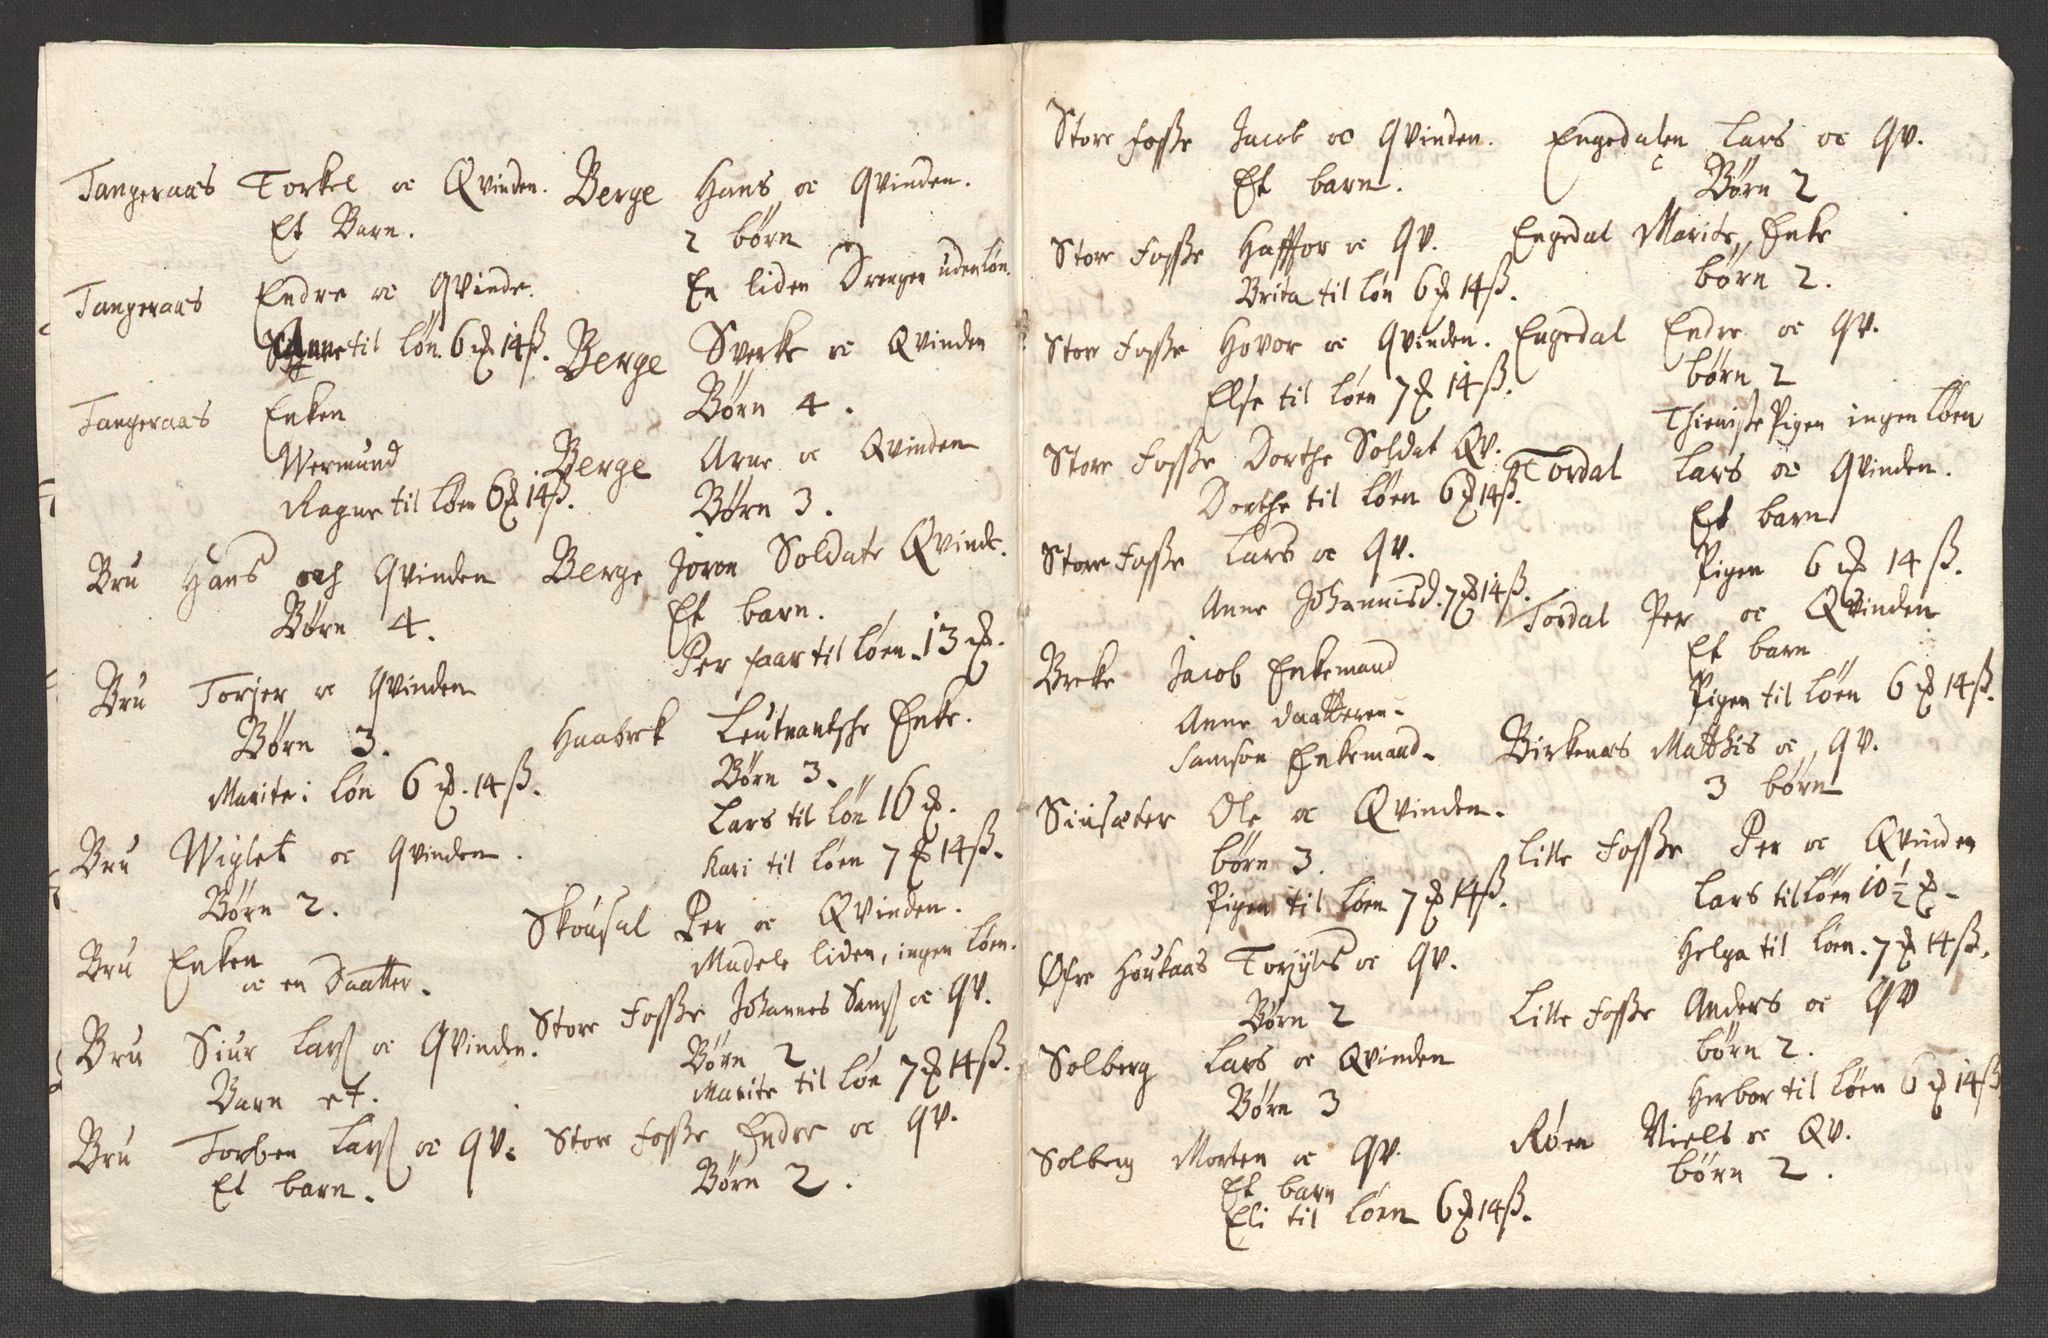 Tangeraas Torkel oc Qvinden.
Et Barn.
Tangeraas Endre oc Qvinde.
til løn 6 ꝸ 14 ß.
Tangeraas Enken
Wermund
Ragne til løen 6 ꝸ 14 ß.
Bru Hans och Qvinden
Børn 4.
Bru Torjer oc Qvinden
Børn 3.
Marite i løn 6 ꝸ. 14 ß.
Bru Wiglet oc Qvinden.
Børn 2.
Bru Enken
oc en Daatter.
Bru Siur Larß oc Qvinden.
Barn et.
Bru Torben Larß oc Qv.
Et barn.
Berge Hans oc Qvinden.
2 børn
En liden Drengen uden løn.
Berge Sverke oc Qvinden
Børn 4.
Berge Arne oc Qvinden
Børn 3.
Berge Joron Soldate Qvinde.
Et barn.
Per faar til løen 13 ꝸ.
Haabrek Leutnantsche Enke.
Børn 3.
Lars til løn 16 ꝸ.
Kari til løen 7 ꝸ 14 ß.
Skousal Per oc Qvinden.
Madele liden, ingen løen.
Store Fosße Johannes Samß oc Qv.
Børn 2
Marite til løn 7 ꝸ 14 ß.
Store Fosße Endre oc Qv.
Børn 2.
Store Fosße Jacob oc Qvinden.
Et barn.
Store Fosße Haffvor oc Qv.
Brita til løn 6 ꝸ 14 ß.
Store Fosße Hovor oc Qvinden.
Else til løen 7 ꝸ 14 ß.
Store Fosße Dorthe Soldat Qv.
Dorthe til løen 6 ꝸ 14 ß.
Store Fosße Lars oc Qv.
Anne Johannisd. 7 ꝸ 14 ß.
Breke Jacob Enkemand
Anne daatteren
Samson Enkemand
Siusæter Ole oc Qvinden.
børn 3.
Pigen til løen 7 ꝸ 14 ß.
Øfre Houkaas Torgyls oc Qv.
Børn 2
Solberg Lars oc Qvinden
Børn 3
Solberg Morten oc Qv.
Et barn
Eli til løen 6 ꝸ 14 ß.
Engedalen Lars oc Qv.
Børn 2
Engedal Marite, Enke
børn 2.
Engedal Endre oc Qv.
børn 2
Thieniste Pigen ingen løen
Tordal Lars oc Qvinden.
Et barn
Pigen 6 ꝸ 14 ß.
Tordal Per oc Qvinden
Et barn
Pigen til løen 6 ꝸ 14 ß.
Birkenæs Matthis oc Qv.
3 børn
Lille Fosße Per oc Qvinden
Lars til løen 10 ½ ꝸ
Helga til løen 7 ꝸ 14 ß.
Lille Fosße Anders oc Qv
børn 2.
Herbor til løen 6 ꝸ 14 ß
Røen Niels oc Qv.
børn 2.